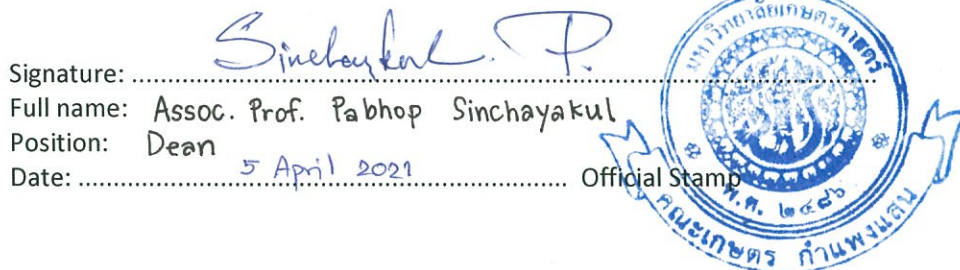 Signature: Sinchayakul. P.
Full name: Assoc. Prof. Pabhop Sinchayakul
Position: Dean
Date: 5 April 2021 Official Stamp
มหาวิทยาลัยเกษตรศาสตร์
พ.ศ. ๒๔๘๖
คณะเกษตร กำแพงแสน